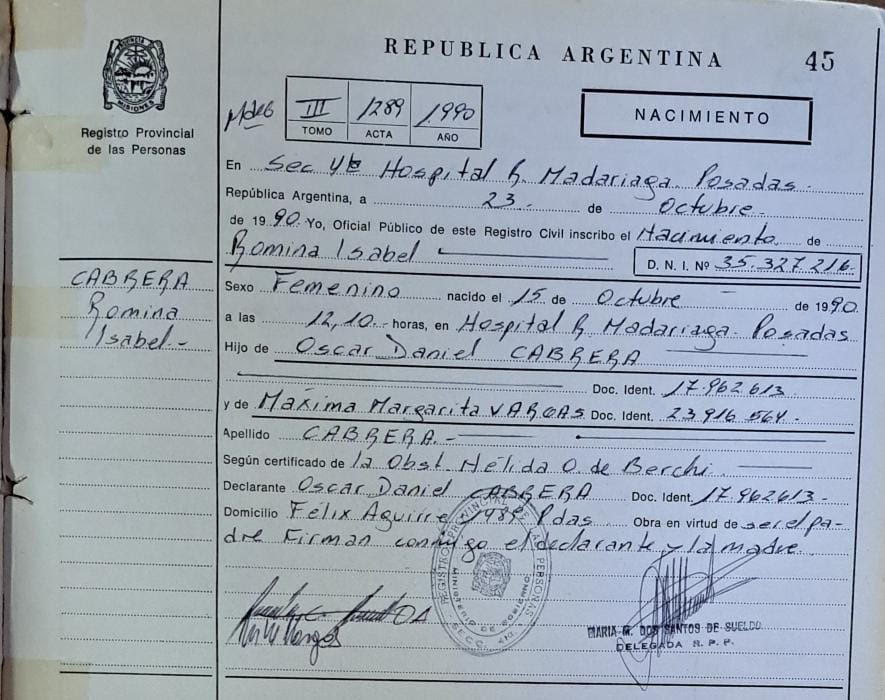 REPUBLICA ARGENTINA 45
PROVINCIA DE MISIONES
Registro Provincial
de las Personas
III 1289 1990
TOMO ACTA AÑO
NACIMIENTO
En Sec 4ta Hospital R. Madariaga. Posadas.
República Argentina, a 23. de Octubre.
de 1990. Yo, Oficial Público de este Registro Civil inscribo el Nacimiento de
Romina Isabel D. N. I. Nº 35.327.216.
CABRERA
Romina
Isabel.-
Sexo Femenino nacido el 15 de Octubre de 1990.
a las 12,10.- horas, en Hospital R. Madariaga. Posadas
Hijo de Oscar Daniel CABRERA
Doc. Ident. 17.962.613.
y de Máxima Margarita VARGAS Doc. Ident. 23.916.564.-
Apellido CABRERA.-
Según certificado de la Obst. Nélida O. de Berchi.
Declarante Oscar Daniel CABRERA Doc. Ident. 17.962613.-
Domicilio Félix Aguirre 1489 Pdas Obra en virtud de ser el pa-
dre Firman conmigo el declarante y la madre.
REGISTRO PROVINCIAL DE LAS PERSONAS
MINISTERIO DE GOBIERNO
MARIA M. DOS SANTOS DE SUELDO
DELEGADA R. P. P.